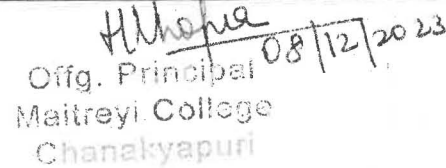 08/12/2023
Offg. Principal
Maitreyi College
Chanakyapuri